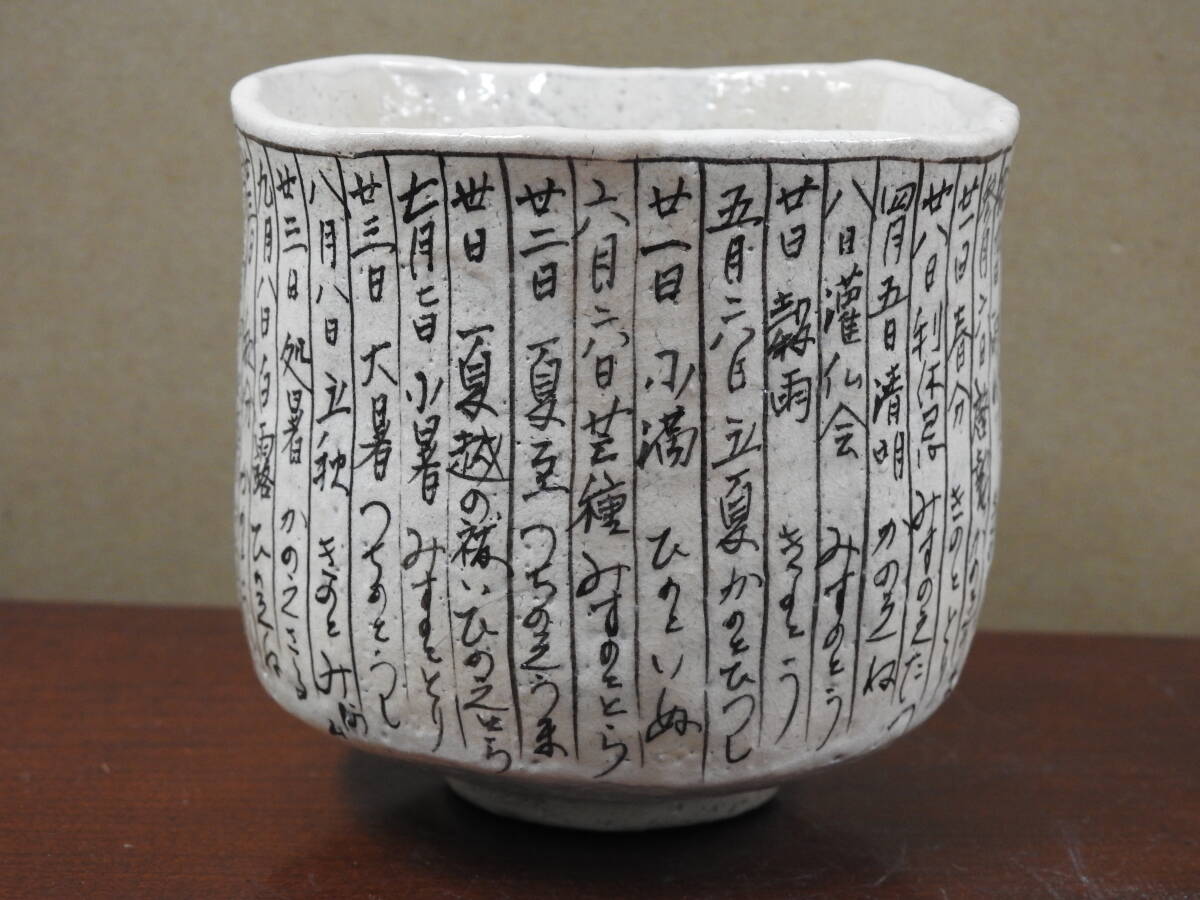 廿一日 春分 きのととり
廿八日 利休忌 みすのえたつ
四月五日 清明 かのえね
八日 灌仏会 みすのとう
廿日 穀雨 きのとう
五月六日 立夏 かのとひつし
廿一日 小満 いぬ
六月六日 芒種 みすのえとら
廿二日 夏至 つちのえうま
卅日 夏越の祓い ひのえとら
七月七日 小暑 みすのととり
廿三日 大暑 つちのとうし
八月八日 立秋 きのとみ
廿三日 処暑 かのえさる
九月八日 白露 ひのえね